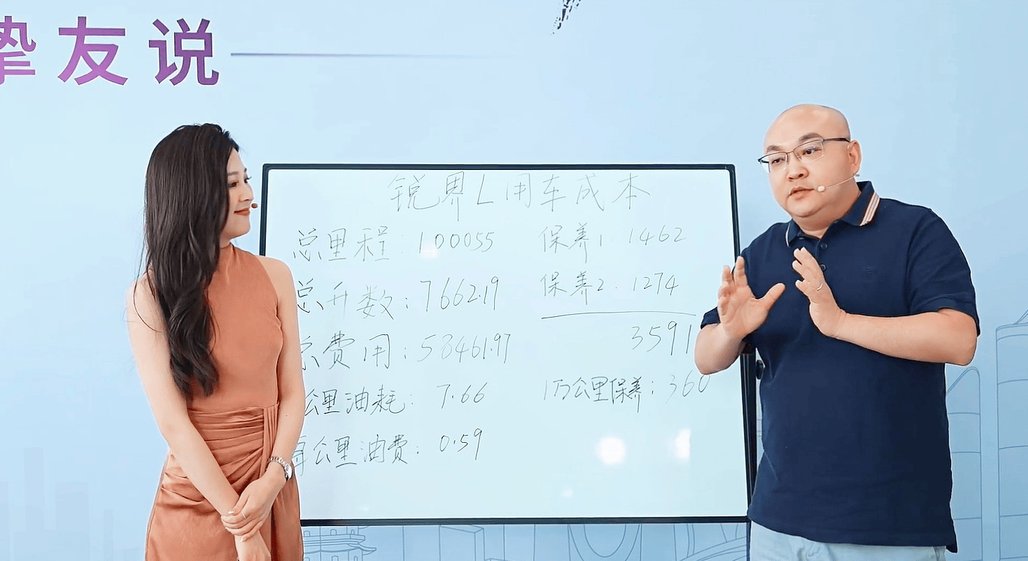 挚友说
锐界L用车成本
总里程：100055
总升数：7662.19
费用：58461.97
公里油耗：7.66
每公里油费：0.59
保养1：1462
保养2：1274
3591
1万公里保养：360